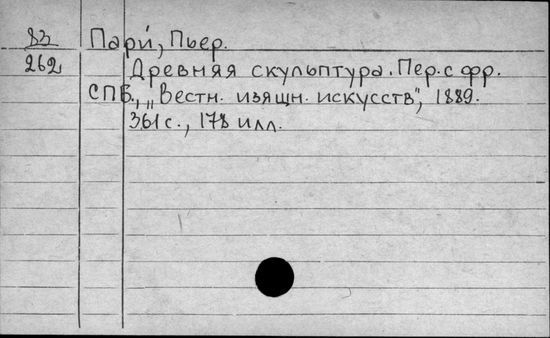 83 Пари́, Пьер.
262 Древняя скульптура. Пер. с фр.
СПБ., „Вестн. изящн. искусств", 1889.
361 с., 178 илл.